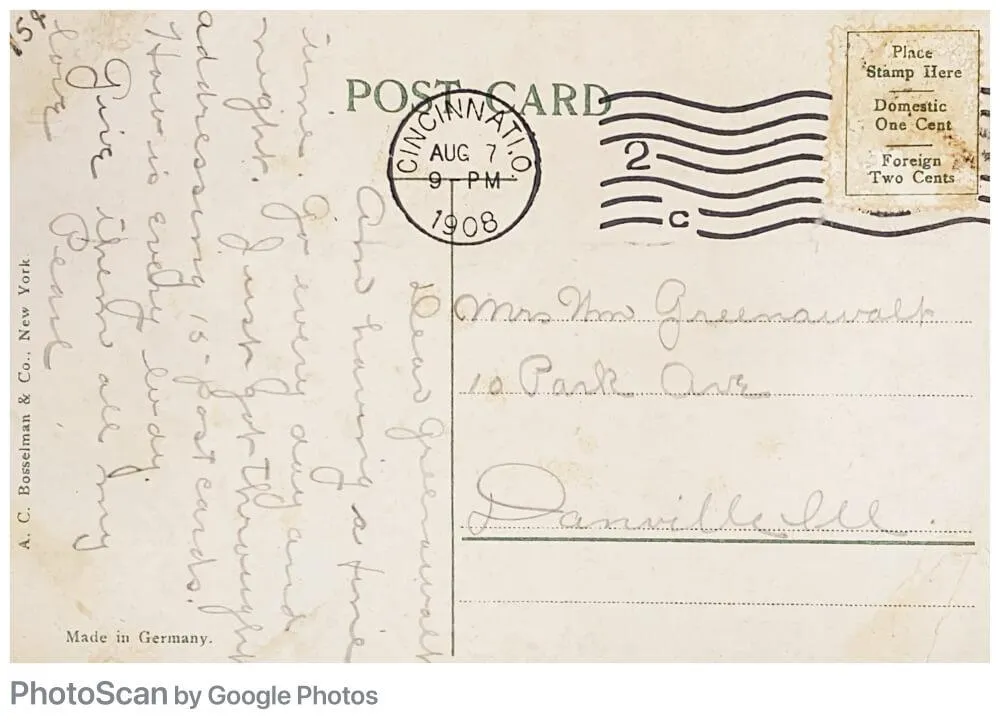 15¢
POST CARD
CINCINNATI, O.
AUG 7
9-PM
1908
2
C
Place
Stamp Here
Domestic
One Cent
Foreign
Two Cents
Dear Greenawalt
Am having a fine
time. Go every day and
night. Just got through
addressing 15 post cards.
How is every body.
Give them all my
love
Pearl
Mrs Wm Greenawalt
10 Park Ave
Danville Ill.
A. C. Bosselman & Co., New York.
Made in Germany.
PhotoScan by Google Photos